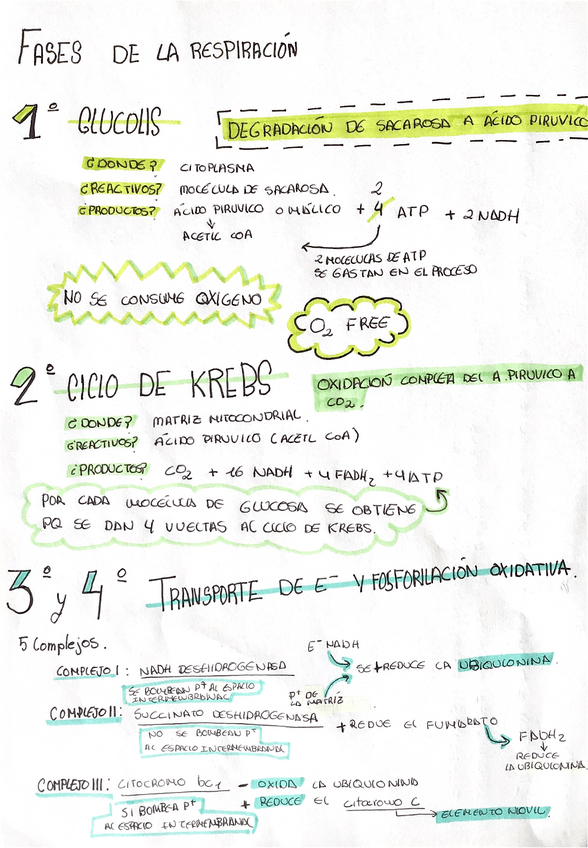 FASES DE LA RESPIRACIÓN
1º GLUCOLIS
DEGRADACIÓN DE SACAROSA A ÁCIDO PIRUVICO
¿DONDE? CITOPLASMA
¿REACTIVOS? MOLÉCULA DE SACAROSA.
¿PRODUCTOS? ÁCIDO PIRUVICO O MÁLICO + 4 ATP + 2 NADH
2
↓
ACETIL COA
2 MOLECULAS DE ATP
SE GASTAN EN EL PROCESO
NO SE CONSUME OXÍGENO
O₂ FREE
2º CICLO DE KREBS
OXIDACIÓN COMPLETA DEL A. PIRUVICO A
CO₂.
¿DONDE? MATRIZ MITOCONDRIAL.
¿REACTIVOS? ÁCIDO PIRUVICO (ACETIL COA)
¿PRODUCTOS? CO₂ + 16 NADH + 4 FADH₂ + 4 ATP
POR CADA MOCÉCULA DE GLUCOSA SE OBTIENE
PQ SE DAN 4 VUELTAS AL CICLO DE KREBS.
3º y 4º TRANSPORTE DE E⁻ Y FOSFORILACIÓN OXIDATIVA.
5 Complejos.
COMPLEJO I: NADH DESHIDROGENASA
E⁻ NADH
P⁺ DE
LA MATRÍZ
SE + REDUCE LA UBIQUIONINA.
SE BOMBEAN P⁺ AL ESPACIO
INTERMEMBRANAL
COMPLEJO II: SUCCINATO DESHIDROGENASA + REDUE EL FUMARATO
NO SE BOMBEAN P⁺
AL ESPACIO INTERMEMBRANAL
FADH₂
↓
REDUCE
LA UBIQUIONINA.
COMPLEJO III: CITOCROMO bc1 – OXIDA LA UBIQUIONINA
+ REDUCE EL citocromo C
SI BOMBEA P⁺
AL ESPACIO INTERMEMBRANAL
ELEMENTO MOVIL.